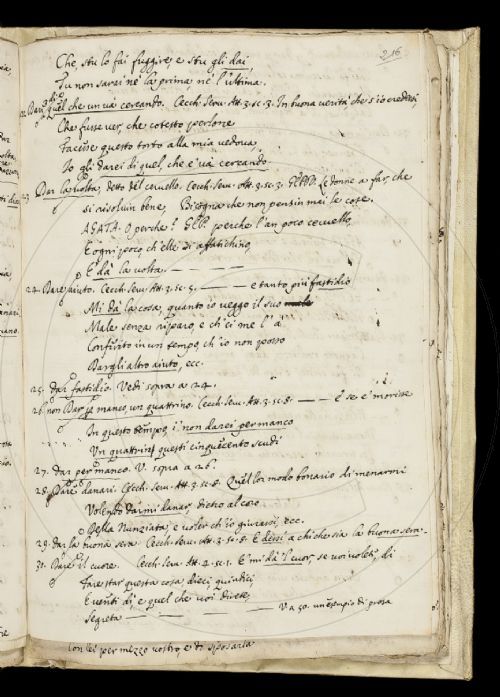 216
Che, stu lo fai fuggire, e stu gli dai,
Tu non sarei nè la prima, nè l'ultima.
22. Dargli quel che un và cercando. Cecch. Serv. Att. 3. sc. 3. In buona verità che s'io credessi,
Che fusse ver, che cotesto perlone
Facesse questo torto alla mia vedova,
Io gli darei di quel, che e' và cercando.
23. Dar la volta, detto del cervello. Cecch. Serv. Att. 3. sc. 3. GEPP. Le donne a far, che
si risolvin bene, Bisogna che non pensin mai le cose.
AGATA. O perche? GEP. perche l'an poco cervello,
E ogni poco ch'elle si affatichino,
E' dà la volta — — —
24. Dare aiuto. Cecch. Serv. Att. 3. sc. 5. — e tanto più fastidio
Mi dà la cosa, quanto io veggo il suo
Male senza riparo, e ch'ei me l'à
Conferito in un tempo, ch'io non posso
Dargli altro aiuto, ecc.
25. dar fastidio. Vedi sopra a 24.
26. non Dar manco un quattrino. Cecch. Serv. Att. 3. sc. 8. — E se e' morisse
In questo tempo, i' non darei per manco
Un quattrin questi cinquecento scudi
27. dar per manco. V. sopra a 26.
28. Dare danari. Cecch. Serv. Att. 3. sc. 8. Quel lor modo bonario di menarmi
Volendo darmi danar, dietro al coro
Della Nunziata, e voler ch'io giurassi, ecc.
29. dar la buona sera. Cecch. Serv. Att. 3. sc. 8. E dessi a chi che sia la buona sera.
31. Dare il cuore. Cecch. Serv. Att. 4. sc. 1. E' mi dà 'l cuor, se voi volete, di
Fare star questa cosa dieci quindici
E venti dì, e quel che voi direte,
Segreta — — V. a 50. un esempio di prosa
con lei per mezzo vostro, e di sposarla